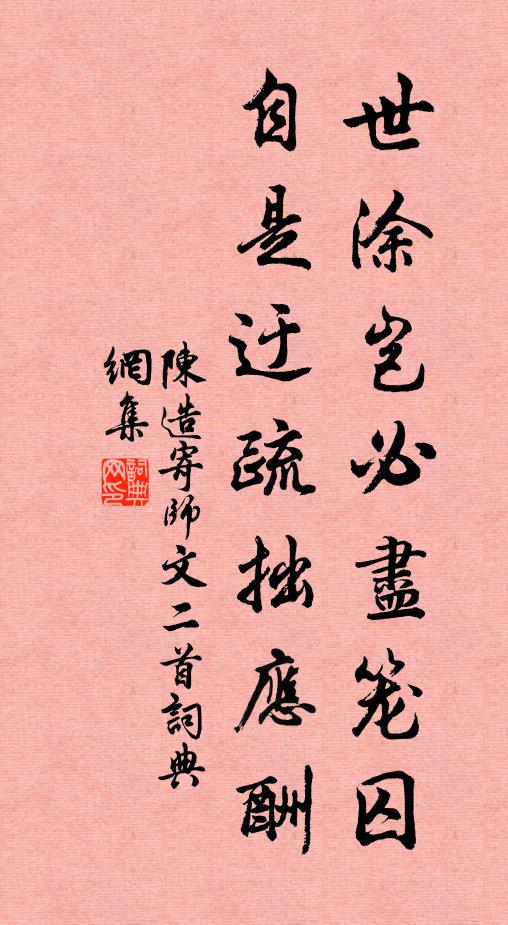 世涂岂必盡笼囚
自是迂疏拙應酬
陳造寄師文二首詞典
網集
詞典网印